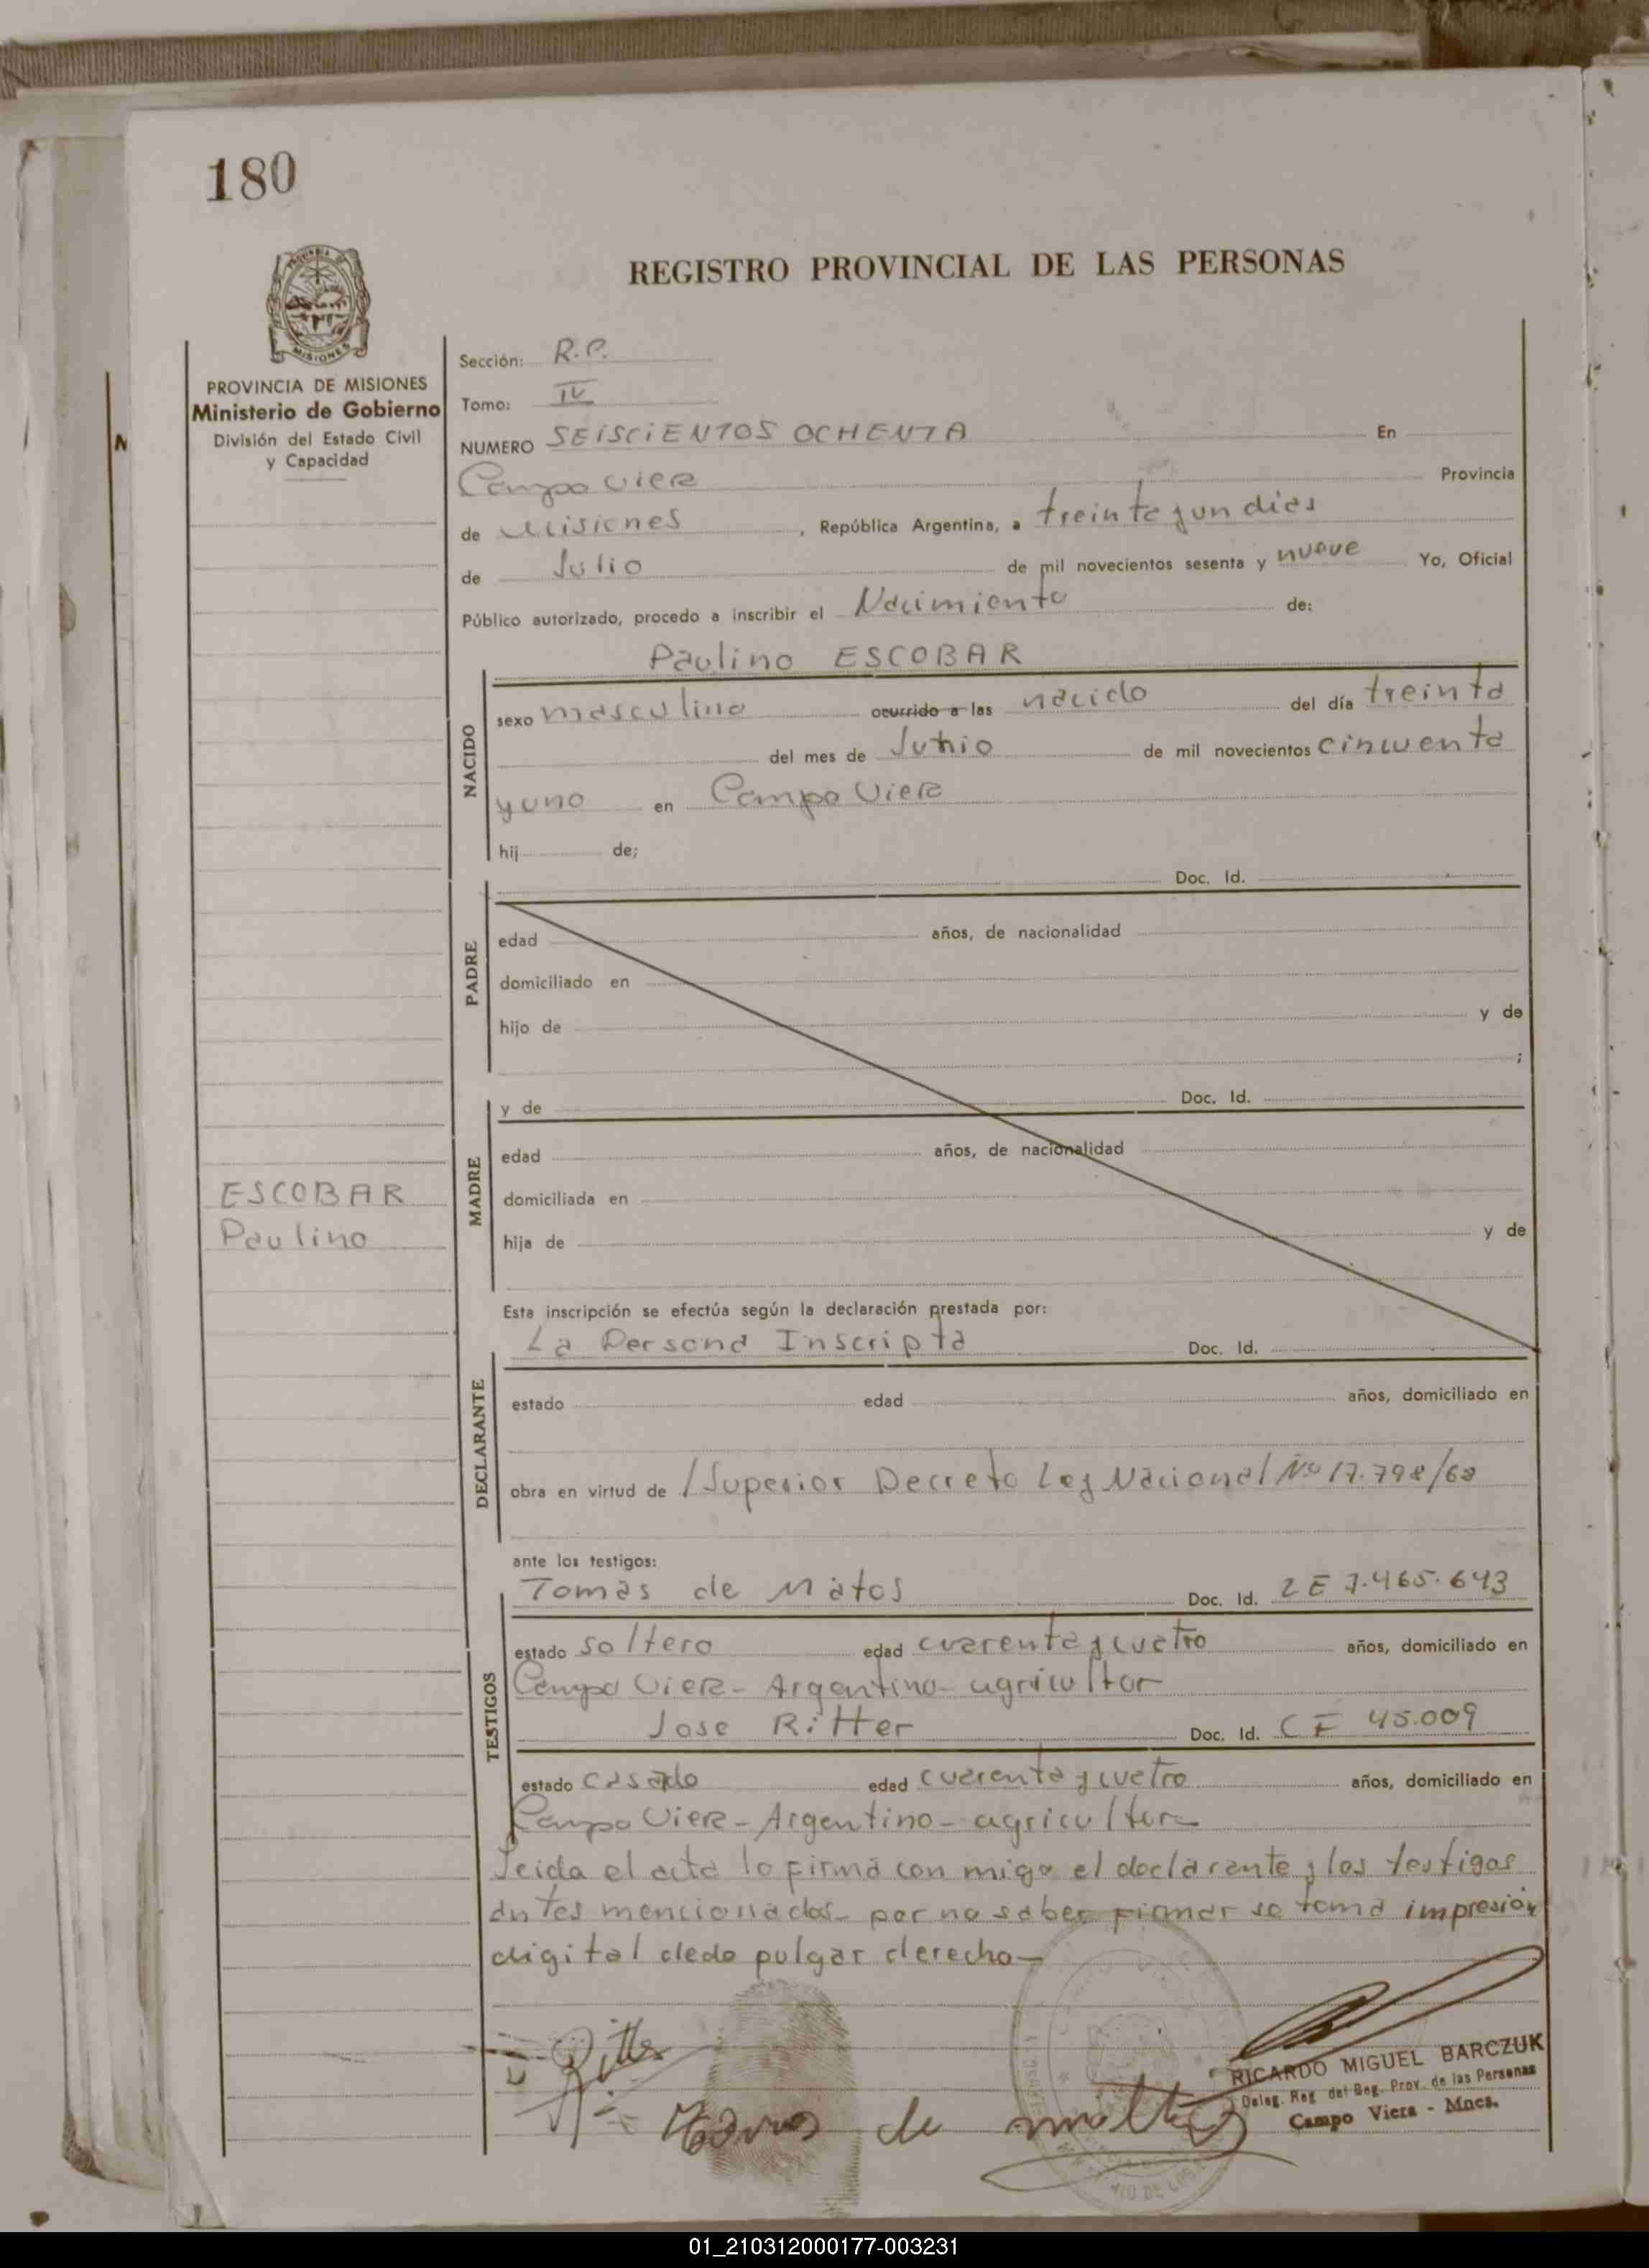 180
REGISTRO PROVINCIAL DE LAS PERSONAS
MISIONES
PROVINCIA DE MISIONES
Ministerio de Gobierno
División del Estado Civil
y Capacidad
Sección: R.P.
Tomo: IV
NUMERO SEISCIENTOS OCHENTA En
Campo Viera Provincia
de Misiones, República Argentina, a treinta y un dias
de Julio de mil novecientos sesenta y nueve Yo, Oficial
Público autorizado, procedo a inscribir el Nacimiento de:
Paulino ESCOBAR
NACIDO
sexo masculino ocurrido a las nacido del día treinta
del mes de Junio de mil novecientos cincuenta
y uno en Campo Viera
hij de;
Doc. Id.
PADRE
edad años, de nacionalidad
domiciliado en
hijo de y de
;
y de Doc. Id.
MADRE
edad años, de nacionalidad
domiciliada en
hija de y de
ESCOBAR
Paulino
Esta inscripción se efectúa según la declaración prestada por:
La Persona Inscripta Doc. Id.
DECLARANTE
estado edad años, domiciliado en
obra en virtud de /Superior Decreto Ley Nacional Nº 17.798/68
ante los testigos:
Tomas de Matos Doc. Id. LE 7.465.643
TESTIGOS
estado soltero edad cuarenta y cuatro años, domiciliado en
Campo Viera - Argentino - agricultor
Jose Ritter Doc. Id. CF 45.009
estado casado edad cuarenta y cuatro años, domiciliado en
Campo Viera - Argentino - agricultor
Leida el acta lo firma con migo el declarante y los testigos
antes mencionados - por no saber firmar se toma impresión
digital dedo pulgar derecho -
Ritter
de
RICARDO MIGUEL BARCZUK
Deleg. Reg. del Reg. Prov. de las Personas
Campo Viera - Mnes.
01_210312000177-003231